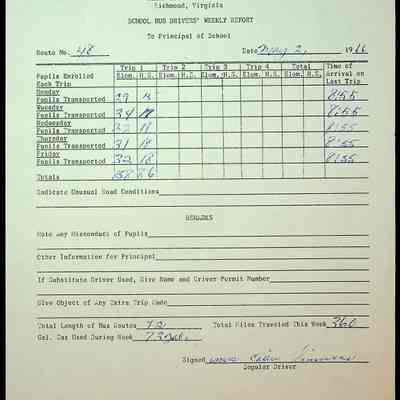 Richmond, Virginia
SCHOOL BUS DRIVERS' WEEKLY REPORT
To Principal of School
Route No. 48 Date May 2, 1966
Trip 1 Trip 2 Trip 3 Trip 4 Total Time of
Pupils Enrolled Elem. H.S. Elem. H.S. Elem. H.S. Elem. H.S. Elem. H.S. Arrival on
Each Trip Last Trip
Monday
Pupils Transported 29 8:55
Tuesday
Pupils Transported 34 8:55
Wednesday
Pupils Transported 32 18 8:55
Thursday
Pupils Transported 31 18 8:55
Friday
Pupils Transported 32 18 8:55
Totals
Indicate Unusual Road Conditions
REMARKS
Note Any Misconduct of Pupils
Other Information for Principal
If Substitute Driver Used, Give Name and Driver Permit Number
Give Object of Any Extra Trip Made
Total Length of Bus Routes 72 Total Miles Traveled This Week 360
Gal. Gas Used During Week 73
Signed
Regular Driver